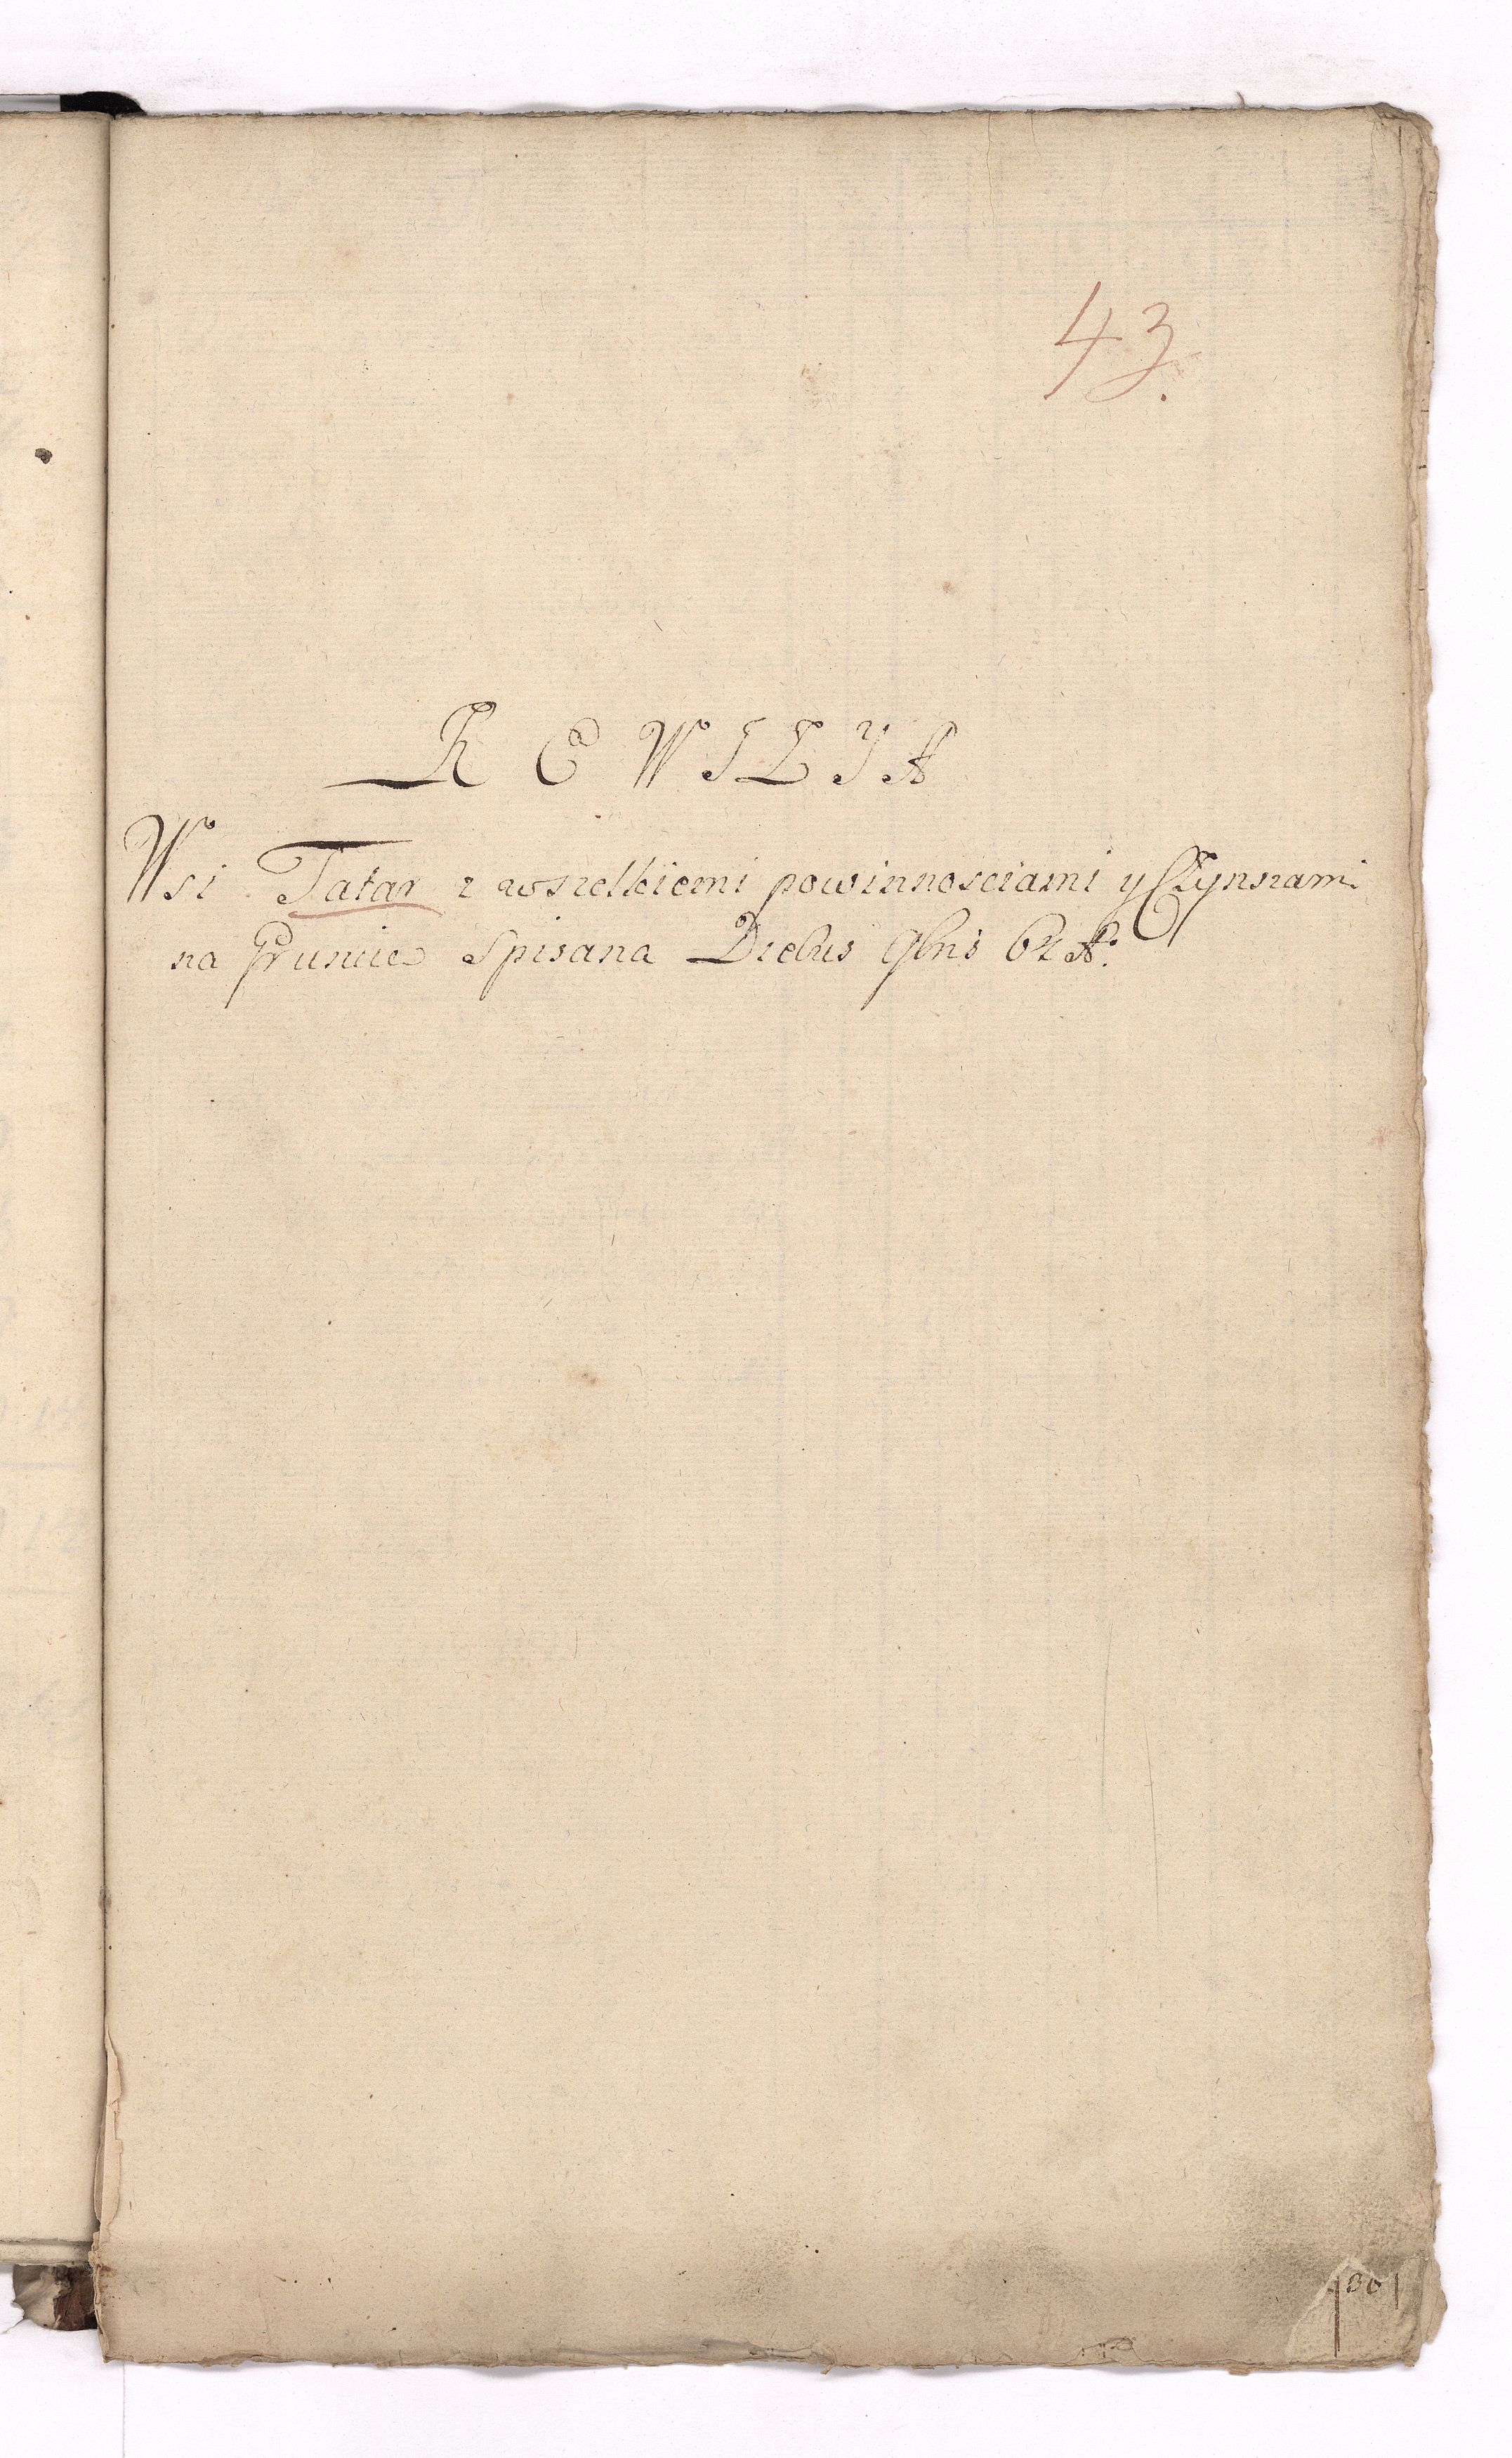 43.
REWIZYA
Wsi Tatar z wszelkiemi powinnosciami y Czynszami
na Gruncie Spisana Diebus 9bris 62 Aº.